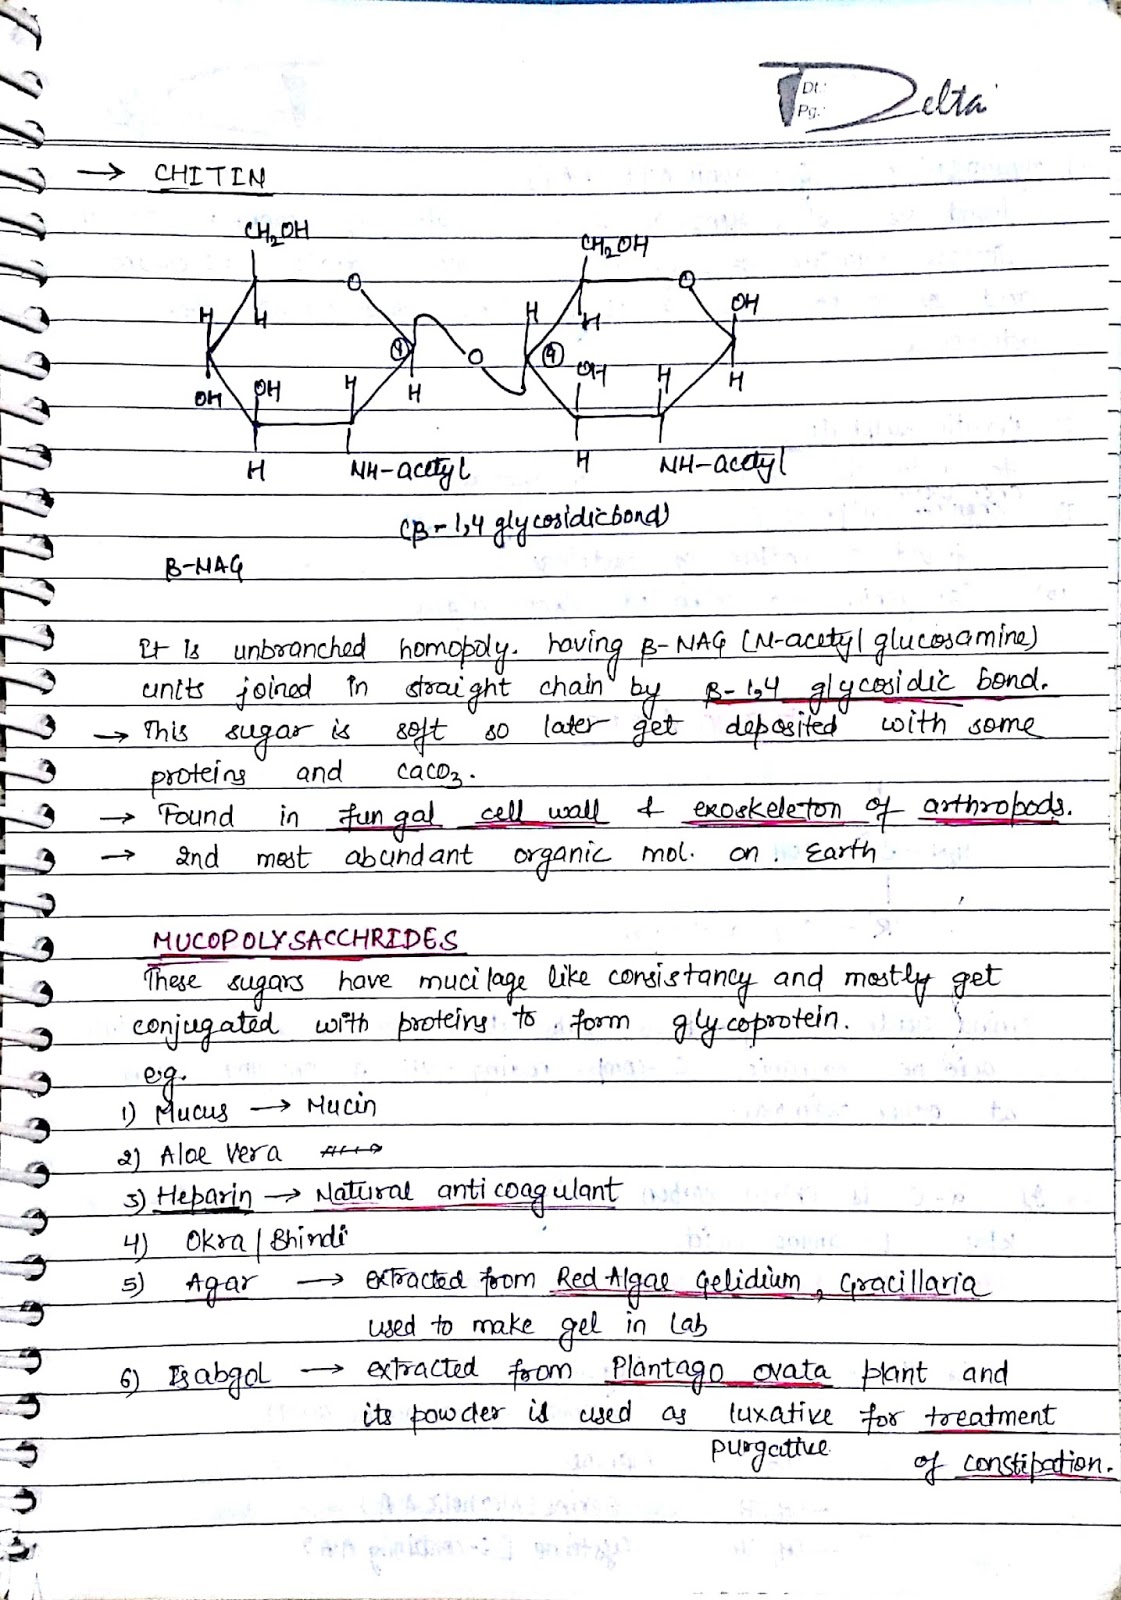 Dt.:
Pg.:
Delta
→ CHITIN
CH₂OH CH₂OH
O O
H H H H OH
① O ④
OH OH H H OH H H
H NH-acetyl H NH-acetyl
(β-1,4 glycosidic bond)
β-NAG
It is unbranched homopoly. having β-NAG (N-acetyl glucosamine)
units joined in straight chain by β-1,4 glycosidic bond.
→ This sugar is soft so later get deposited with some
proteins and CaCO₃.
→ Found in fungal cell wall & exoskeleton of arthropods.
→ 2nd most abundant organic mol. on . Earth
MUCOPOLYSACCHRIDES
These sugars have mucilage like consistancy and mostly get
conjugated with proteins to form glycoprotein.
e.g.
1) Mucus → Mucin
2) Aloe Vera
3) Heparin → Natural anticoagulant
4) Okra / Bhindi
5) Agar → extracted from Red Algae Gelidium, Gracillaria
used to make gel in Lab
6) Isabgol → extracted from Plantago ovata plant and
its powder is used as luxative for treatment
purgative of constipation.